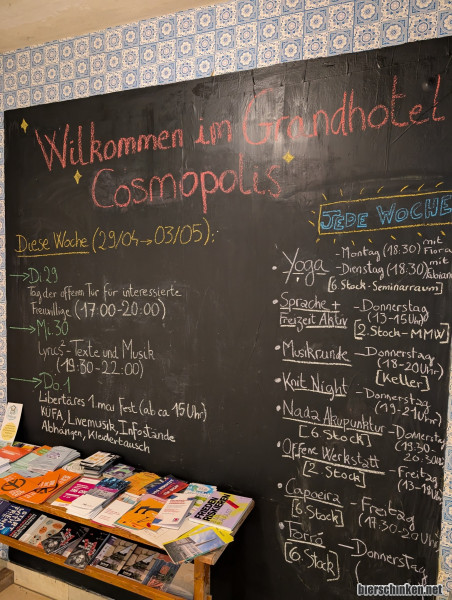 Willkommen im Grandhotel
Cosmopolis
Diese Woche (29/04 → 03/05):
→ Di. 29
Tag der offenen Tür für interessierte
Freiwillige (17:00-20:00)
→ Mi. 30
Lyrics²-Texte und Musik
(19:30-22:00)
→ Do. 1
Libertäres 1. mai Fest (ab ca 15 Uhr)
KÜFA, Livemusik, Infostände
Abhängen, Kleidertausch
JEDE WOCHE
• Yoga - Montag (18:30) mit Flora
- Dienstag (18:30) mit Fabian
[6. Stock-Seminarraum]
• Sprache + - Donnerstag
freizeit Aktiv (13-15 Uhr)
[2. Stock-MMW]
• Musikrunde - Donnerstag
(18-20 Uhr)
[Keller]
• Knit Night - Donnerstag
(19-21 Uhr)
• Nada Akupunktur - Donnerstag
[6. Stock] (19:30-
20:30
• Offene Werkstatt - Freitag
[2. Stock] (13-18
• Capoeira - Freitag
[6. Stock] (17:30-20
• Forró - Donnerstag
[6. Stock]
bierschinken.net